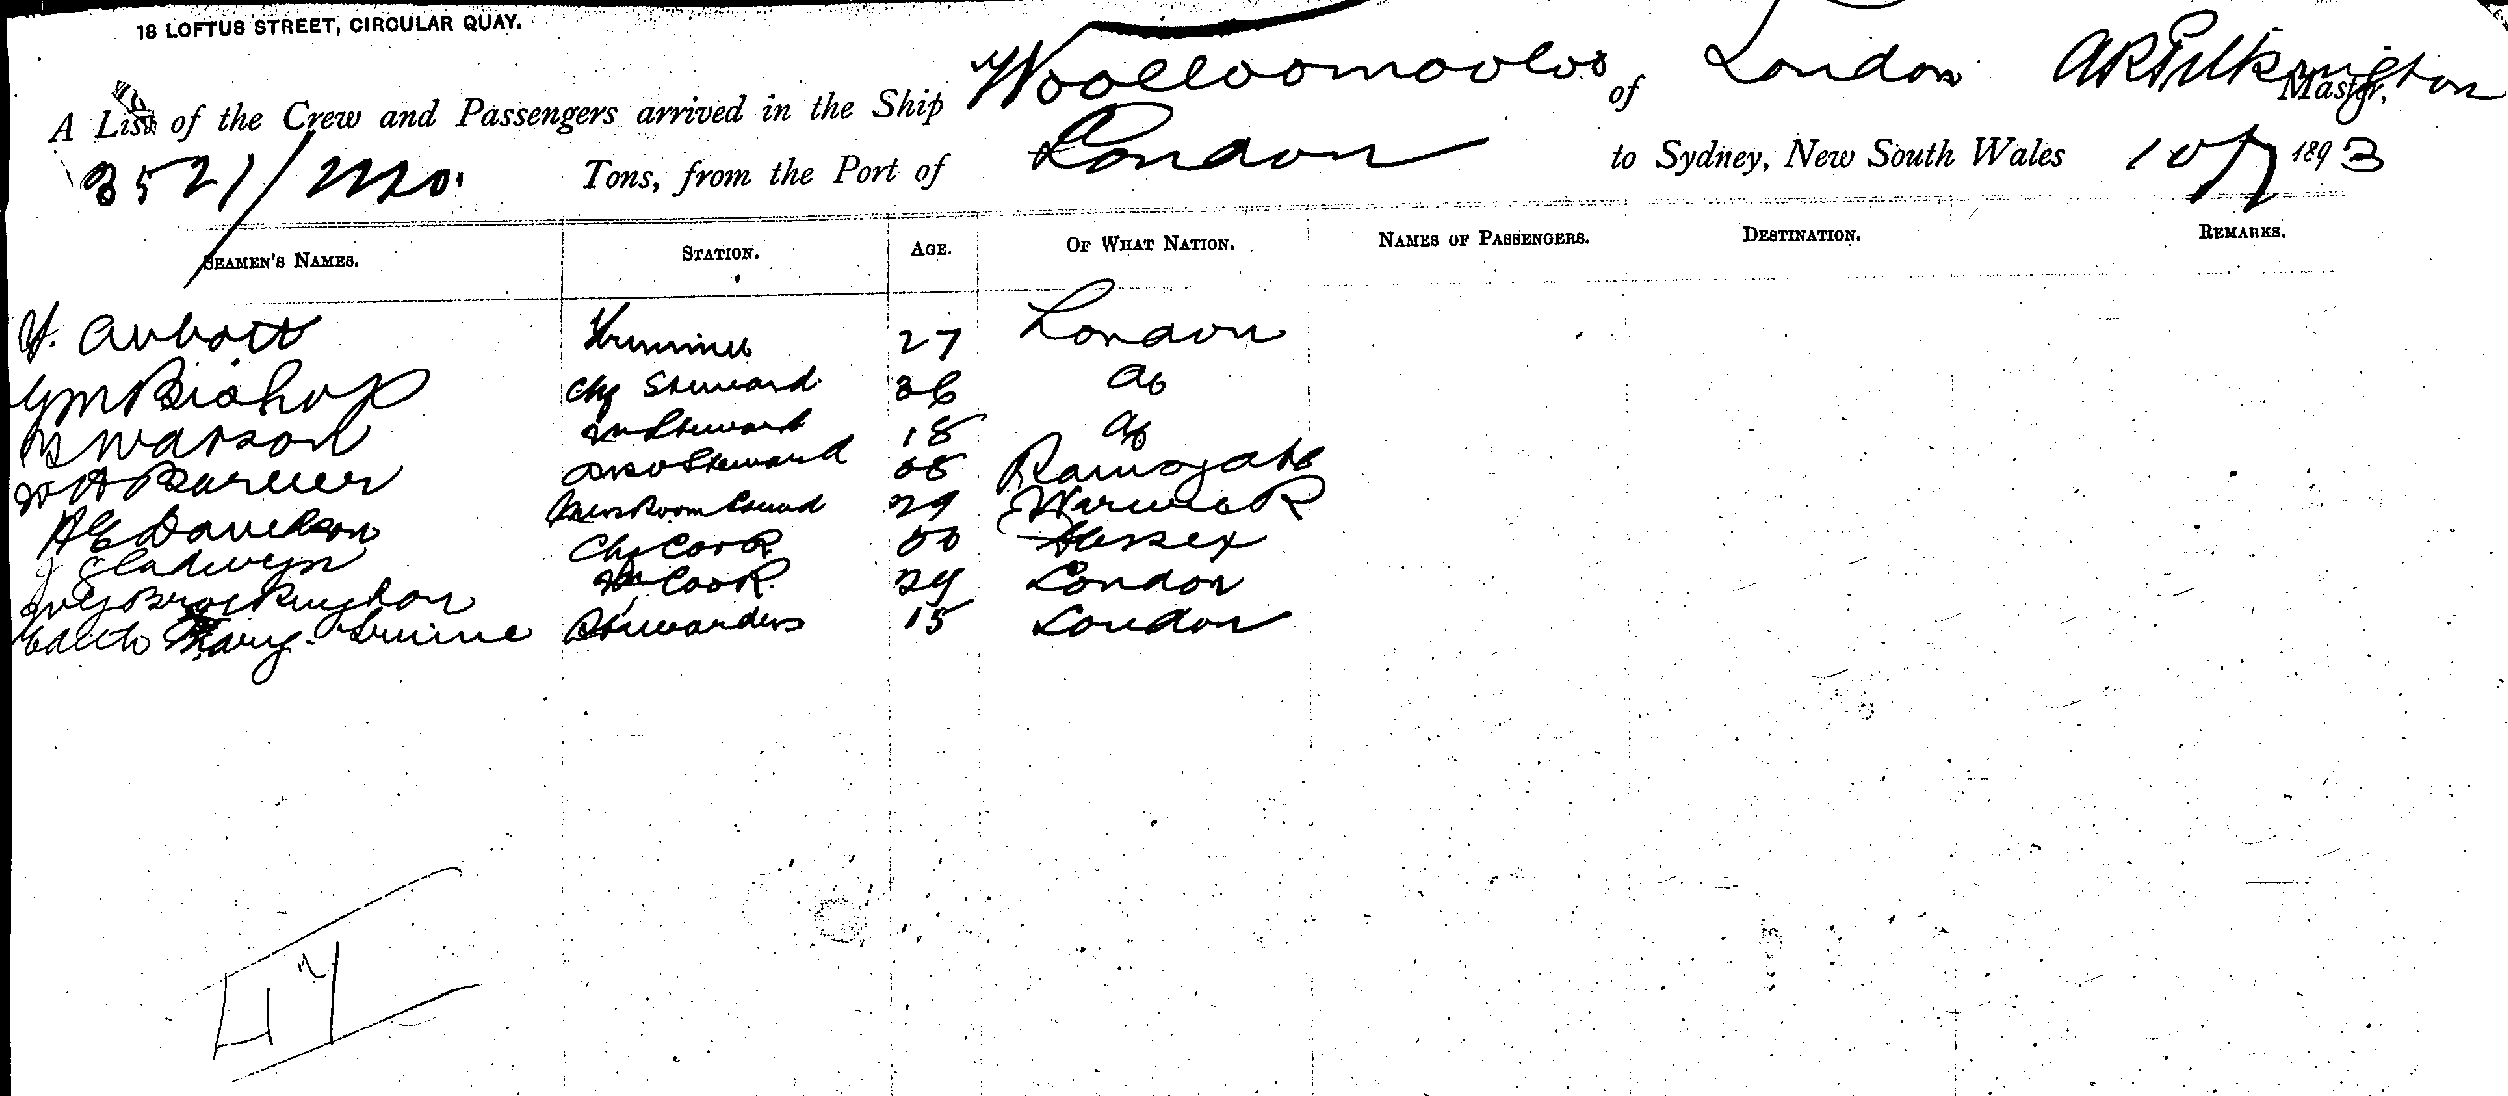 18 LOFTUS STREET, CIRCULAR QUAY.
A List of the Crew and Passengers arrived in the Ship Woolloomooloo of London A R Pilkington Master,
2521/ Tons, from the Port of London to Sydney, New South Wales 10/7 1893
SEAMEN'S NAMES. STATION. AGE. OF WHAT NATION. NAMES OF PASSENGERS. DESTINATION. REMARKS.
Abbott Trimmer 27 London
G M Bishop Chf Steward 36 do
Watson Steward 18 do
Steward Ramsgate
A E Davidson Mess Room Steward 29 Warwick
J Gladwyn Chf Cook 50 Sussex
Cook 24 London
Edith Mary Stewardess London